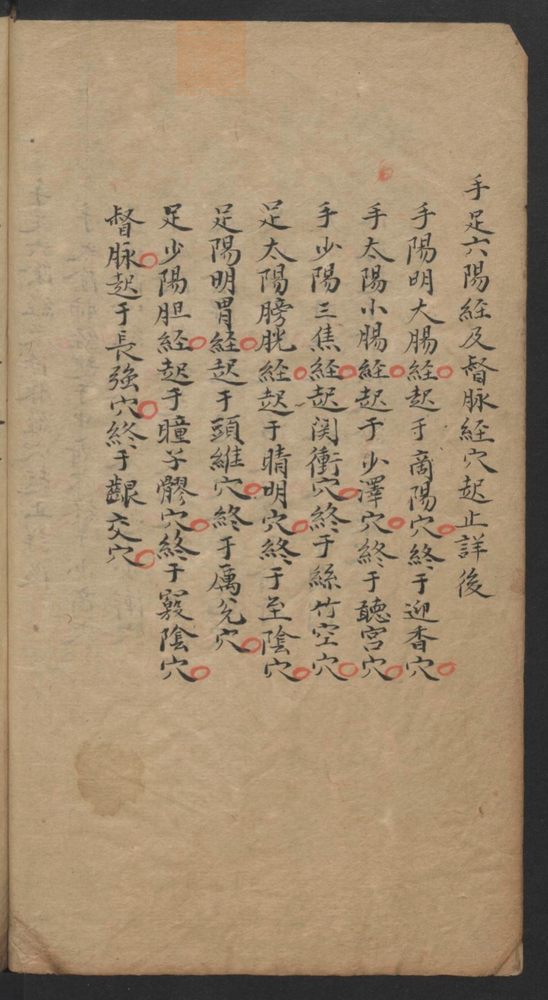 手足六陽經及督脉經穴起止詳後
手陽明大腸經起于商陽穴終于迎香穴
手太陽小腸經起于少澤穴終于聽宮穴
手少陽三焦經起関衝穴終于絲竹空穴
足太陽膀胱經起于睛明穴終于至陰穴
足陽明胃經起于頭維穴終于厲兊穴
足少陽胆經起于瞳子髎穴終于竅陰穴
督脉起于長強穴終于齦交穴